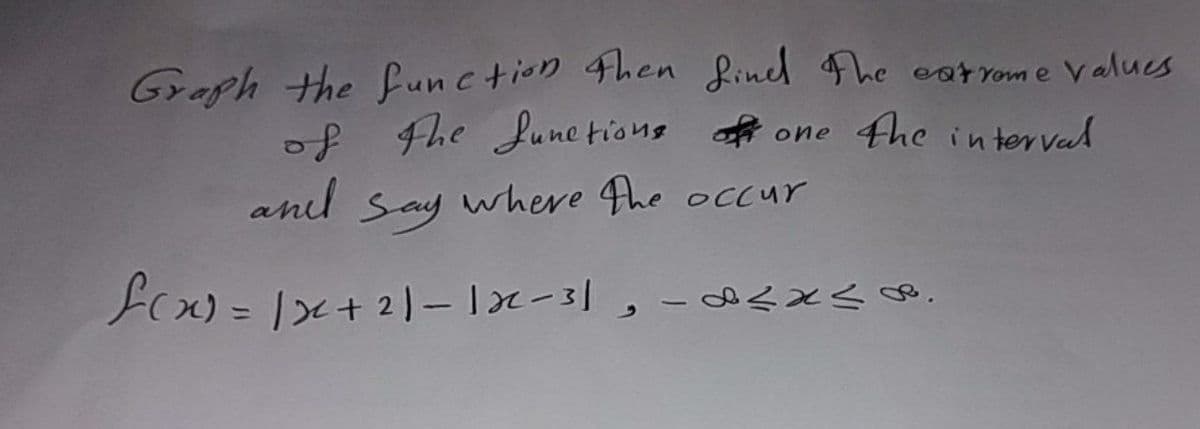 Graph the function then find the extreme values
of the functions one the interval
and say where the occur
f(x) = |x+2| - |x-3| , -∞≤x≤∞.